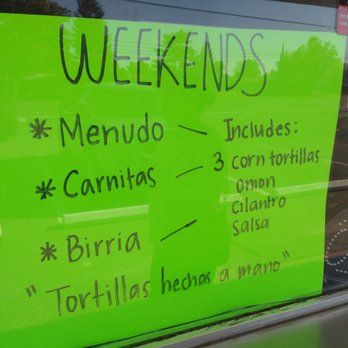 WEEKENDS
* Menudo — Includes:
* Carnitas — 3 corn tortillas
onion
cilantro
salsa
* Birria —
"Tortillas hechas a mano"